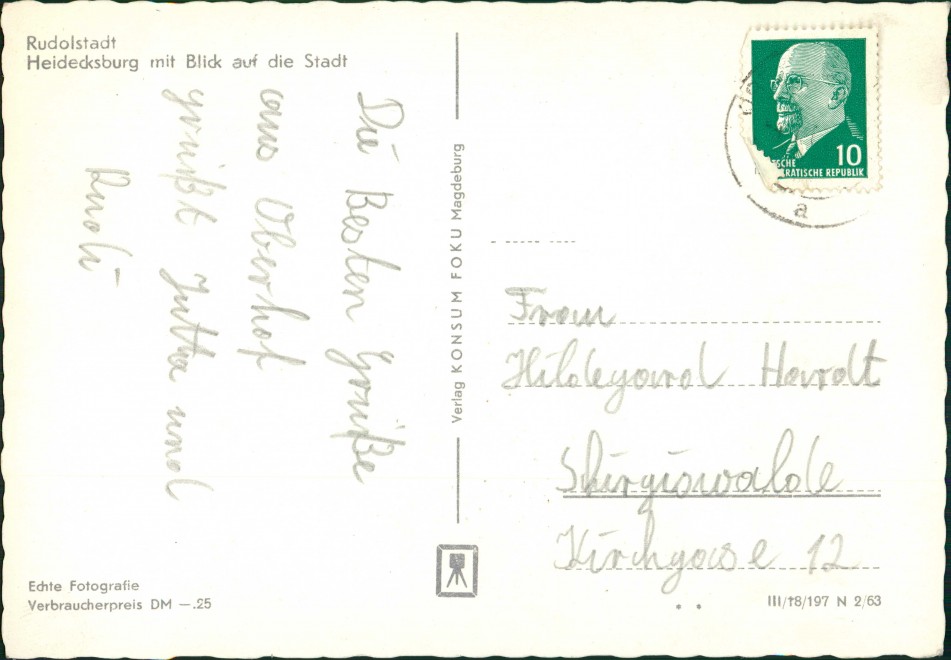 Rudolstadt
Heidecksburg mit Blick auf die Stadt
Die Besten Grüße
aus Oberhof
grüßt Jutta und
Rudi
Verlag KONSUM FOKU Magdeburg
10
SCHE
RATISCHE REPUBLIK
a
Frau
Hildegard Hardt
Shirgiswalde
Kirchgase 12
Echte Fotografie
Verbraucherpreis DM —.25
III/18/197 N 2/63